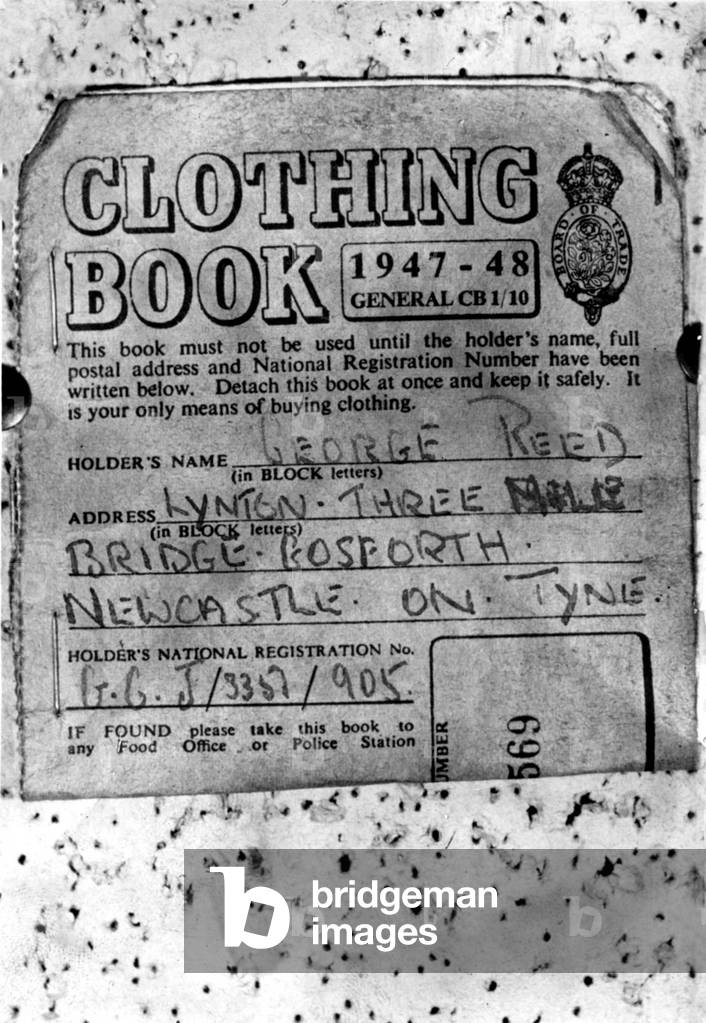 CLOTHING
BOOK
1947 - 48
GENERAL CB 1/10
BOARD · OF · TRADE
This book must not be used until the holder's name, full
postal address and National Registration Number have been
written below. Detach this book at once and keep it safely. It
is your only means of buying clothing.
HOLDER'S NAME GEORGE REED
(in BLOCK letters)
ADDRESS LYNTON · THREE MILE
(in BLOCK letters)
BRIDGE · GOSFORTH ·
NEWCASTLE · ON · TYNE.
HOLDER'S NATIONAL REGISTRATION No.
/ 905.
IF FOUND please take this book to
any Food Office or Police Station
UMBER
569
b bridgeman
images